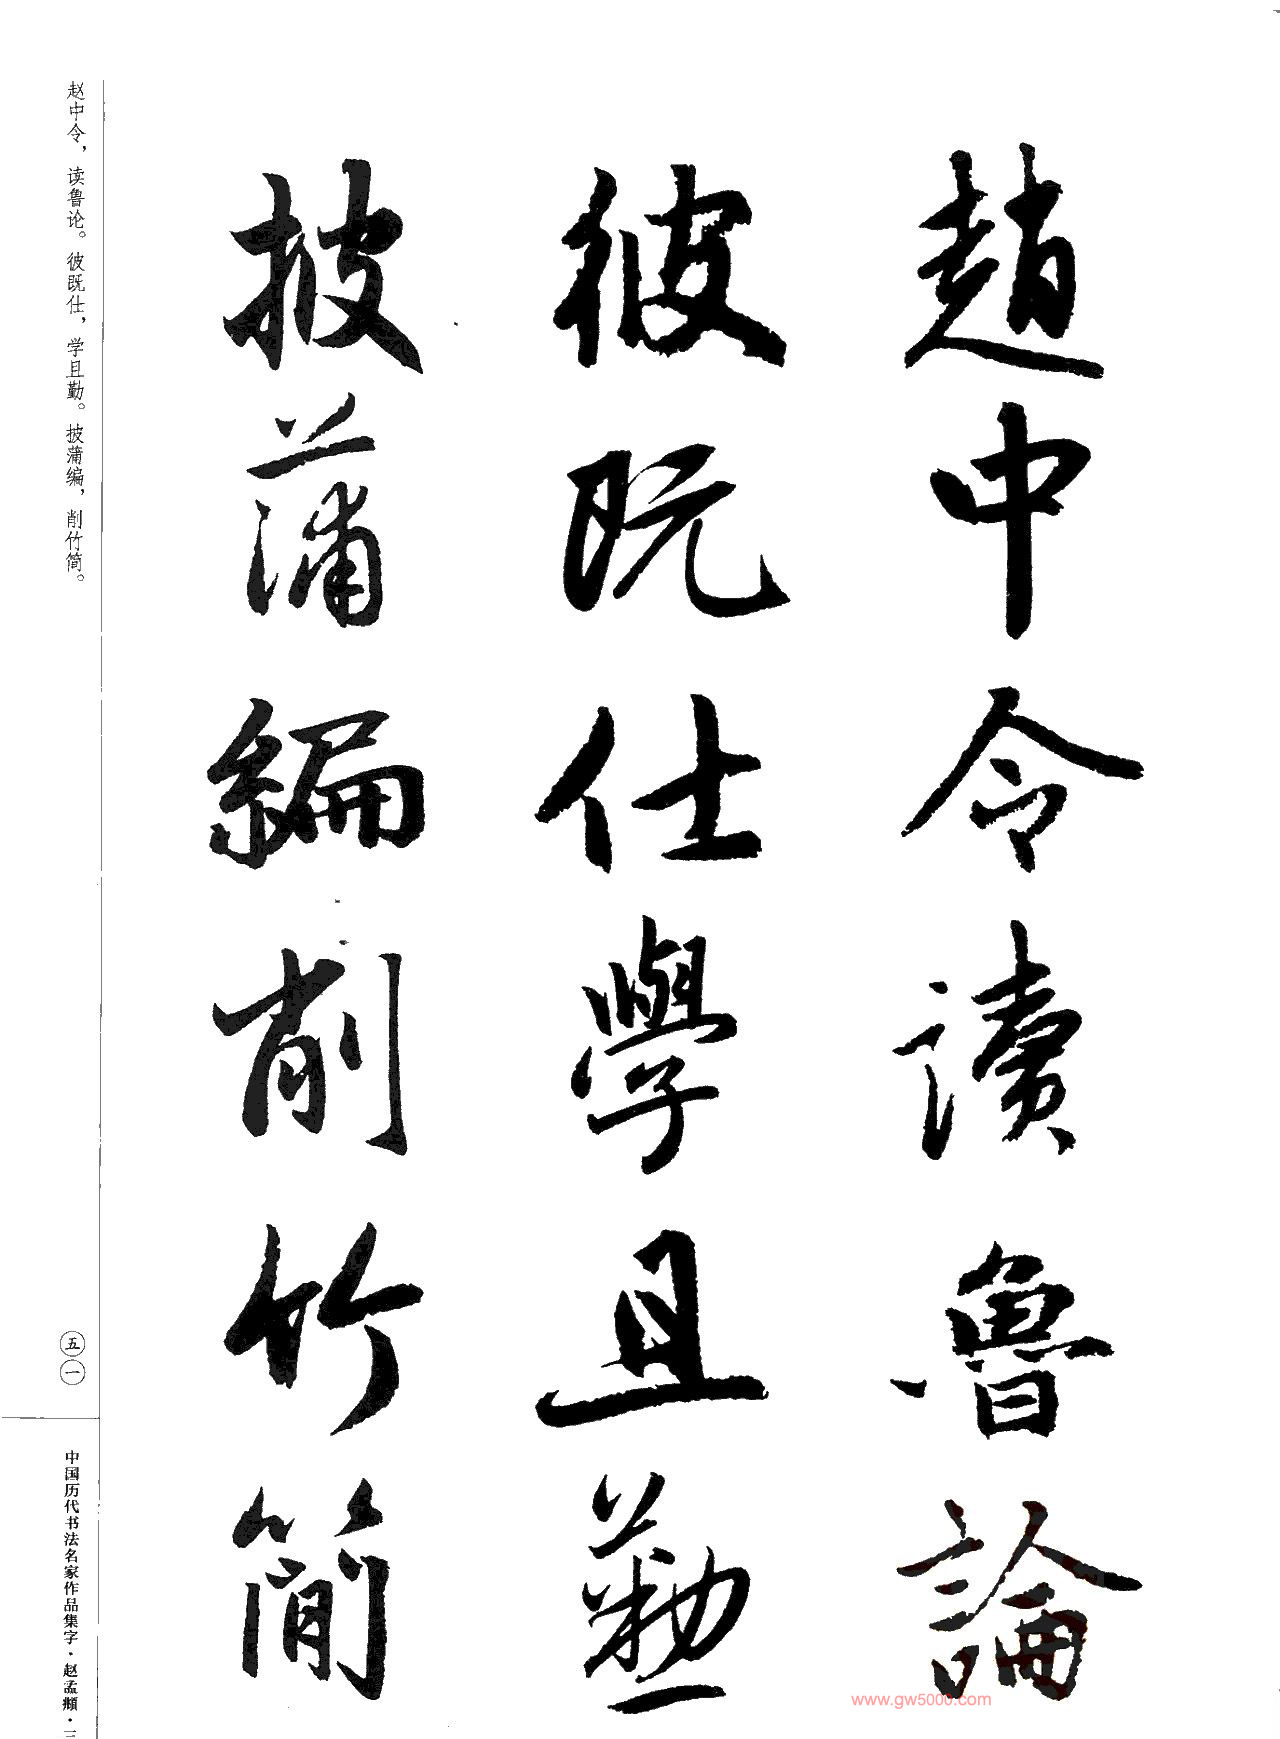 趙中令讀魯論
彼既仕學且勤
披蒲編削竹簡
赵中令，读鲁论。彼既仕，学且勤。披蒲编，削竹简。
五一
中国历代书法名家作品集字·赵孟頫·三
www.gw5000.com